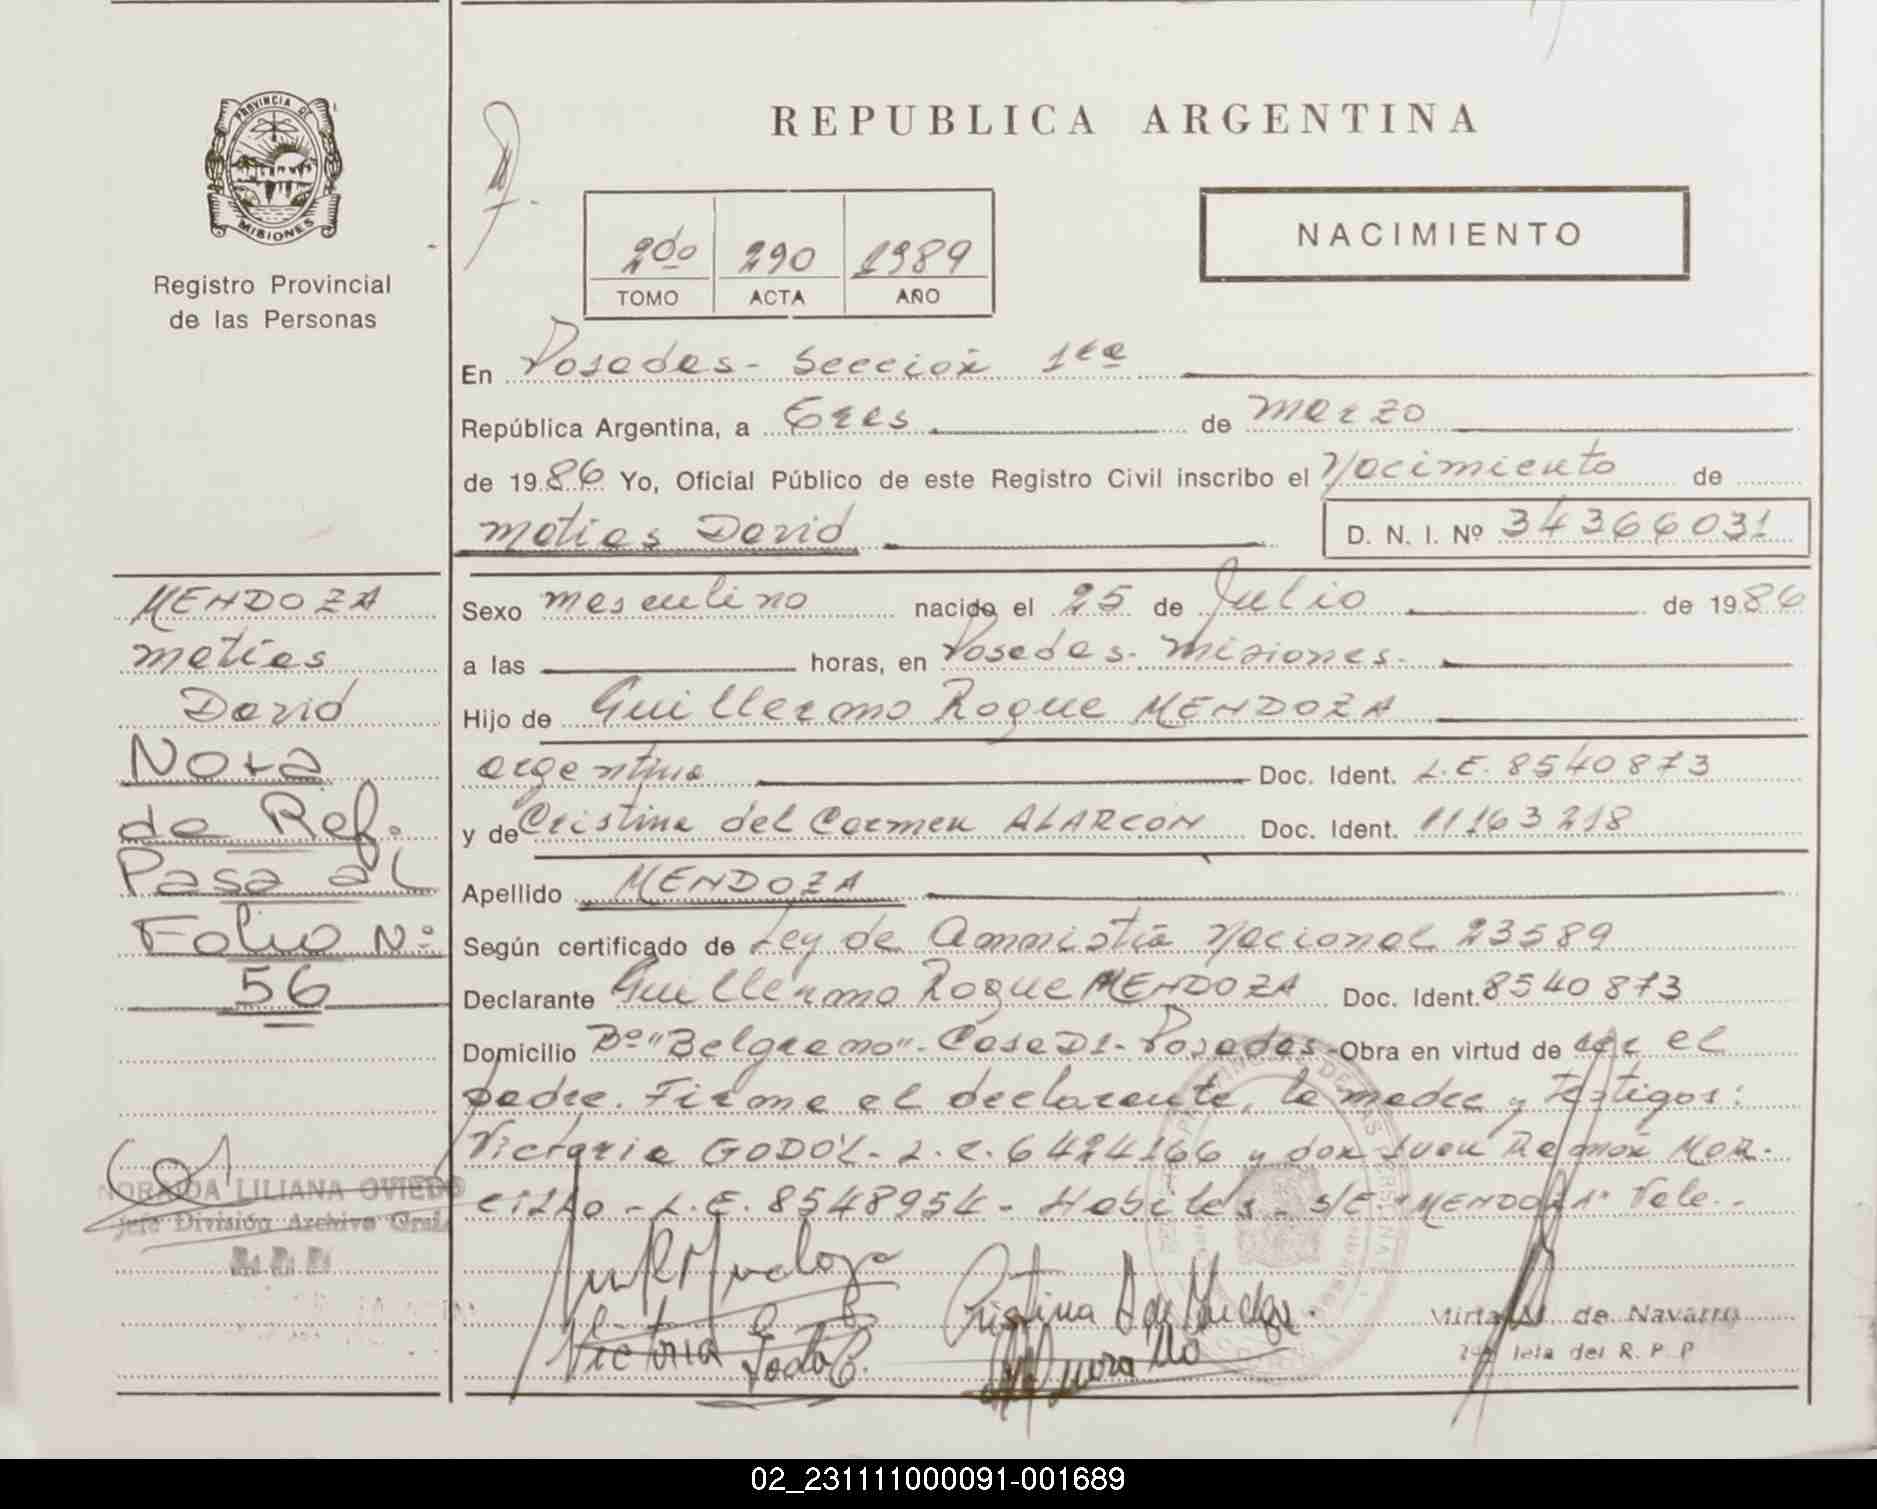 PROVINCIA DE
MISIONES
Registro Provincial
de las Personas
REPUBLICA ARGENTINA
NACIMIENTO
2do 290 1989
TOMO ACTA AÑO
En Posadas - Sección 1ra
República Argentina, a Tres de Marzo
de 1986 Yo, Oficial Público de este Registro Civil inscribo el Nacimiento de
Matias David D. N. I. Nº 34366031
MENDOZA
Matias
David
Nota
de Ref.
Pasa al
Folio Nº
56
NORAIDA LILIANA OVIEDO
Jefe División Archivo Gral.
Sexo masculino nacido el 25 de Julio de 1986
a las horas, en Posadas - Misiones.
Hijo de Guillermo Roque MENDOZA
argentina Doc. Ident. L.E. 8540873
y de Cristina del Carmen ALARCON Doc. Ident. 11163218
Apellido MENDOZA
Según certificado de Ley de Amnistia Nacional 23589
Declarante Guillermo Roque MENDOZA Doc. Ident. 8540873
Domicilio Bº "Belgrano" - Casa D1 - Posadas - Obra en virtud de ser el
padre. Firma el declarante, la madre y testigos:
Victoria GODOY - L.C. 6424166 y don Juan Ramón MOR-
CILLO - L.E. 8548954 - Habiles - S/E. "MENDOZA" Vale. -
Cristina A de Mendoza.
Victoria Godoy
Mirta M. de Navarro
Jefa del R. P. P
02_231111000091-001689